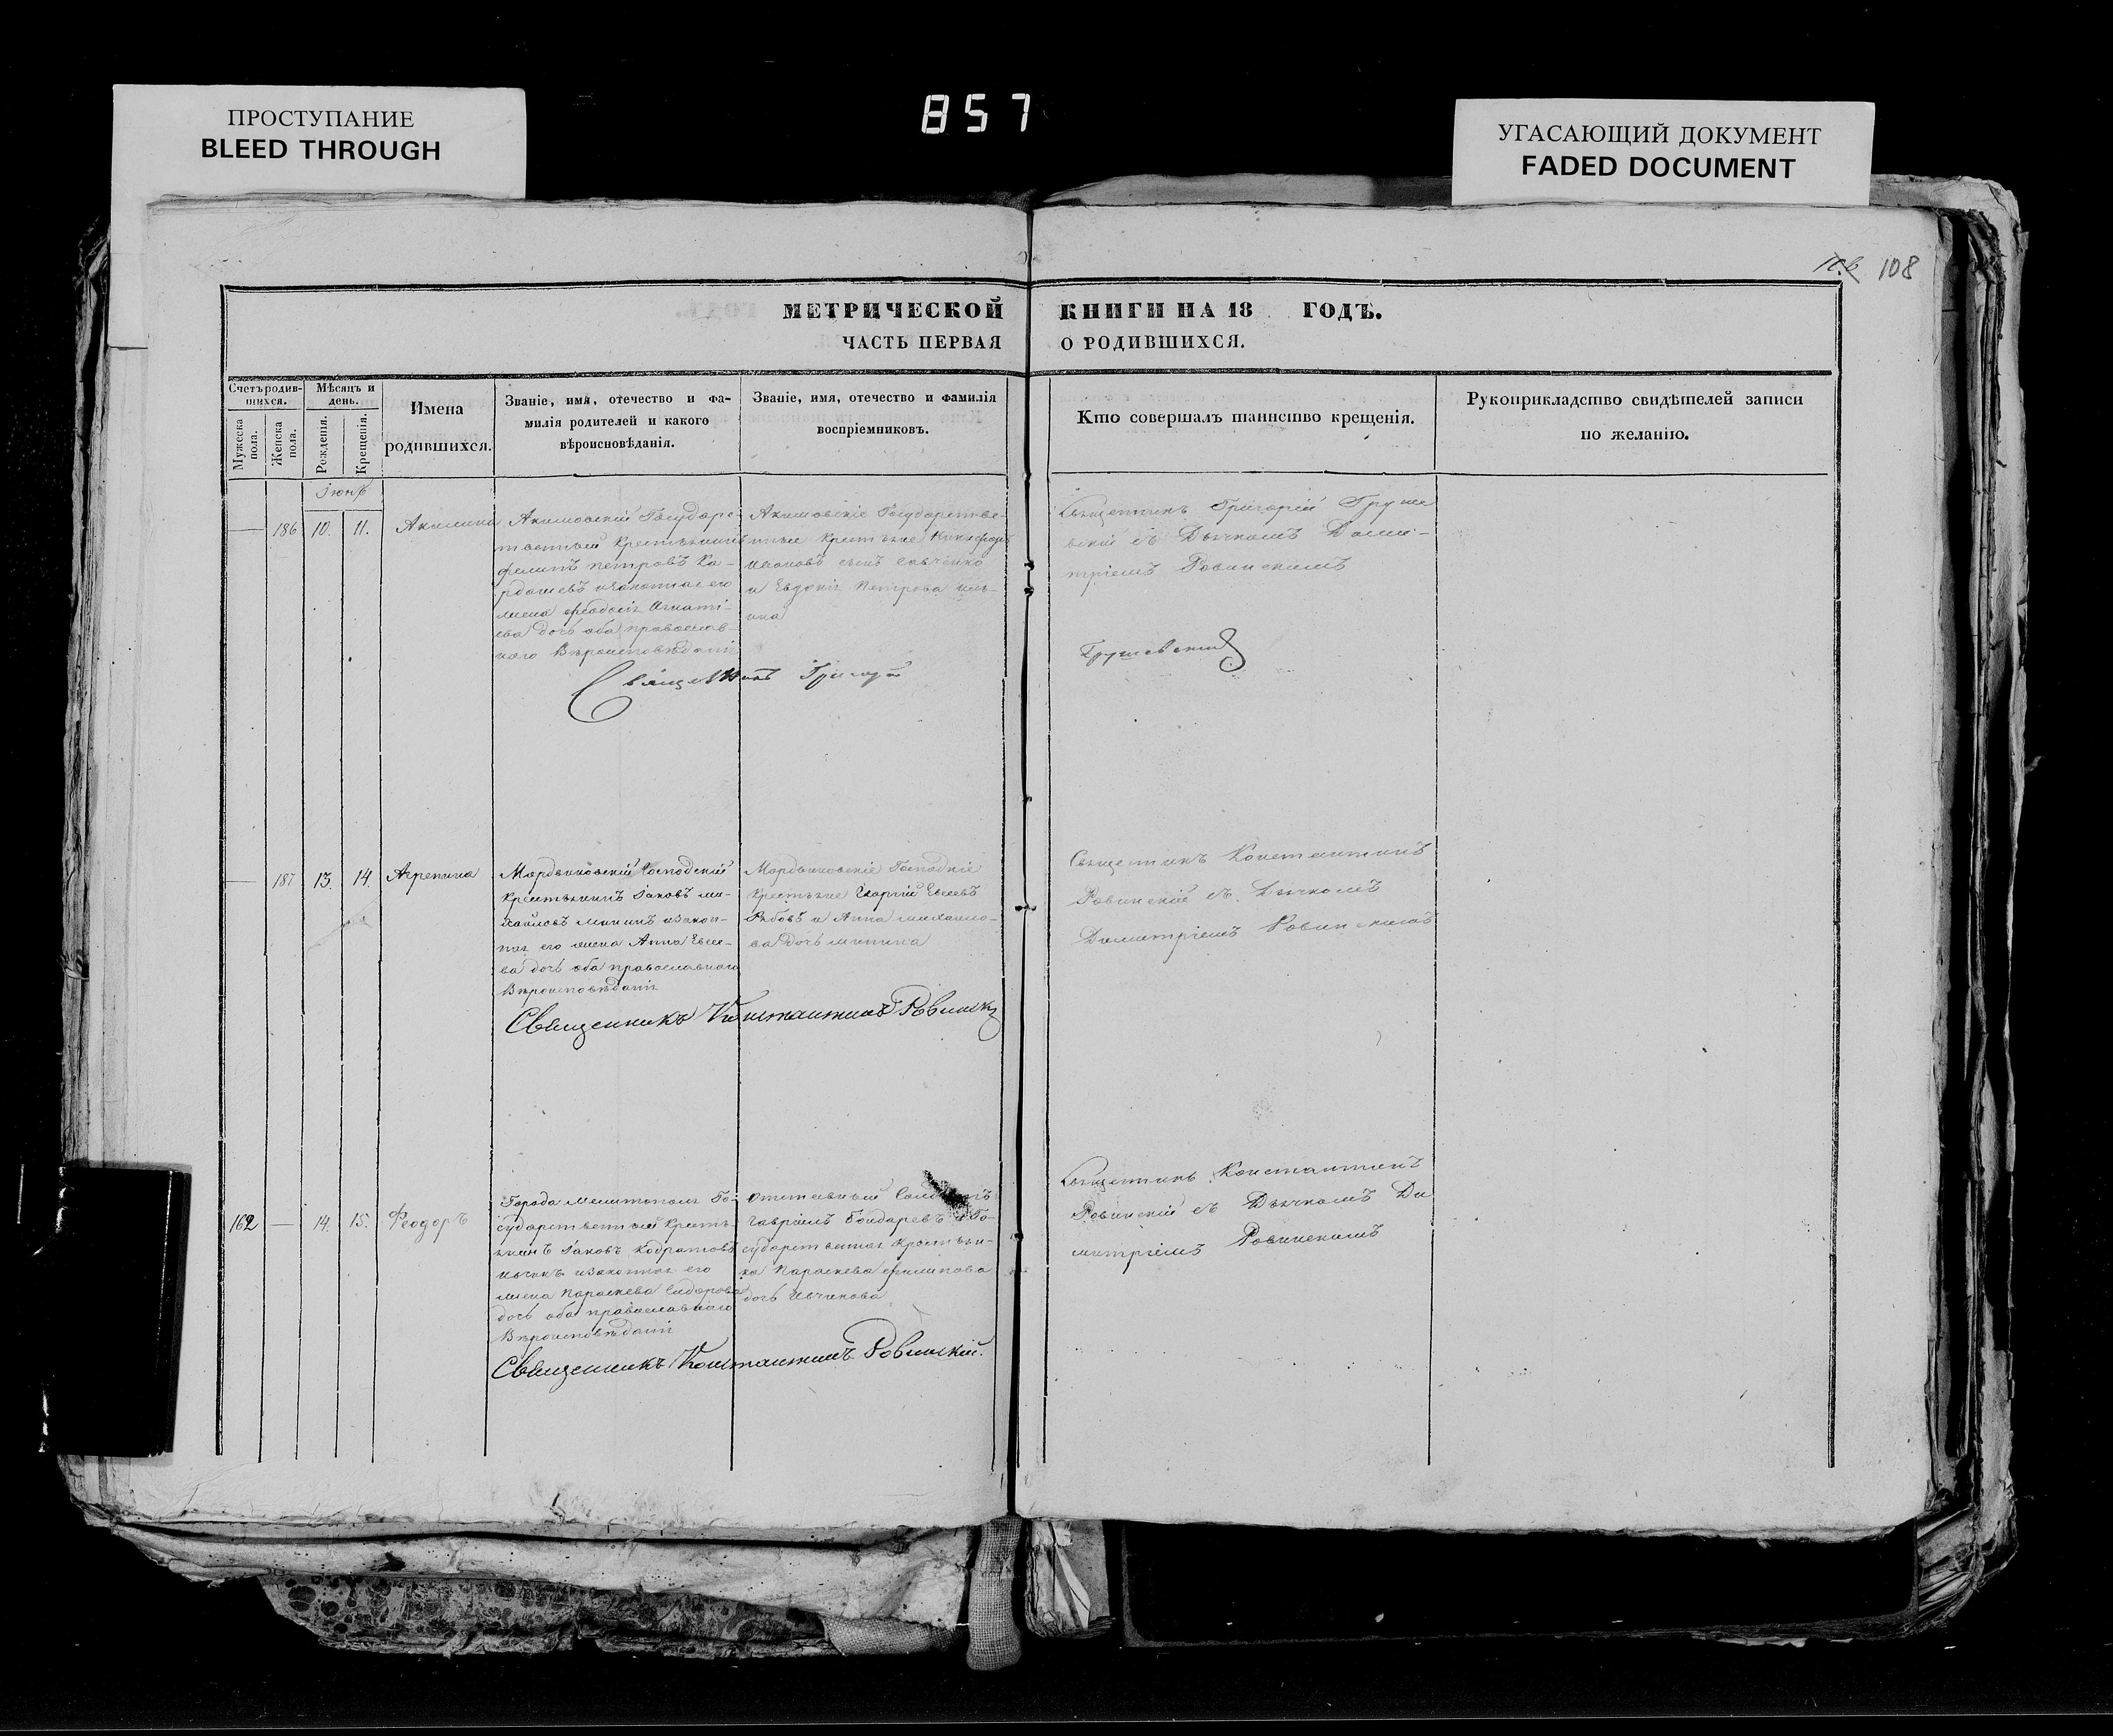 ПРОСТУПАНИЕ
BLEED THROUGH
857
УГАСАЮЩИЙ ДОКУМЕНТ
FADED DOCUMENT
108
МЕТРИЧЕСКОЙ КНИГИ НА 18 ГОДЪ.
ЧАСТЬ ПЕРВАЯ О РОДИВШИХСЯ.
Счетъ родив-
шихся.
Мужеска
пола.
Женска
пола.
Мѣсяцъ и
день.
Рожденія.
Крещенія.
Имена
родившихся.
Званіе, имя, отечество и фа-
милія родителей и какого
вѣроисповѣданія.
Званіе, имя, отечество и фамилія
воспріемниковъ.
Кто совершалъ таинство крещенія.
Рукоприкладство свидѣтелей записи
по желанію.
Іюнь
186 10. 11. Акилина
Акимовскій Государс-
твенный Крестьянинъ
филипъ петровъ Ка-
рдашевъ изаконная его
жена феодосія Игнаті-
ева дочь оба православ-
наго Вѣроисповѣданія
Акимовскіе Государстве-
нные крестьяне Никифоръ
Ивановъ сынъ савченко
и Евдокія Петрова
Священникъ Григорій Груше
вскій съ Дьячкомъ Дими-
тріемъ Ровинскимъ
Священникъ Григорій Грушевскій
187 13. 14. Агрепина
Мордвиновскій Господскій
крестьянинъ Іаковъ ми-
хайловъ мининъ изакон-
ная его жена Анна Евсе-
ва дочь оба православнаго
Вѣроисповѣданія
Мордвиновскіе Господскіе
крестьяне Георгій Евсеевъ
Рябовъ и Анна михайло-
ва дочь минина
Священникъ Константинъ
Ровинскій съ Дьячкомъ
Димитріемъ Ровинскимъ
Священникъ Константинъ Ровинскій
162 14. 15. Феодоръ
Города мелитополя Го-
сударственный кресть-
янинъ Іаковъ Кодратовъ
изаконная его
жена параскева Сидорова
дочь оба православнаго
Вѣроисповѣданія
Отставный Солдатъ
гавріилъ Бондаревъ и Го-
сударственная крестьян-
ка Параскева филипова
дочь Ивчикова
Священникъ Константинъ
Ровинскій съ Дьячкомъ Ди
митріемъ Ровинскимъ
Священникъ Константинъ Ровинскій.